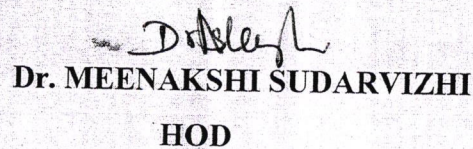 Dr. MEENAKSHI SUDARVIZHI
HOD